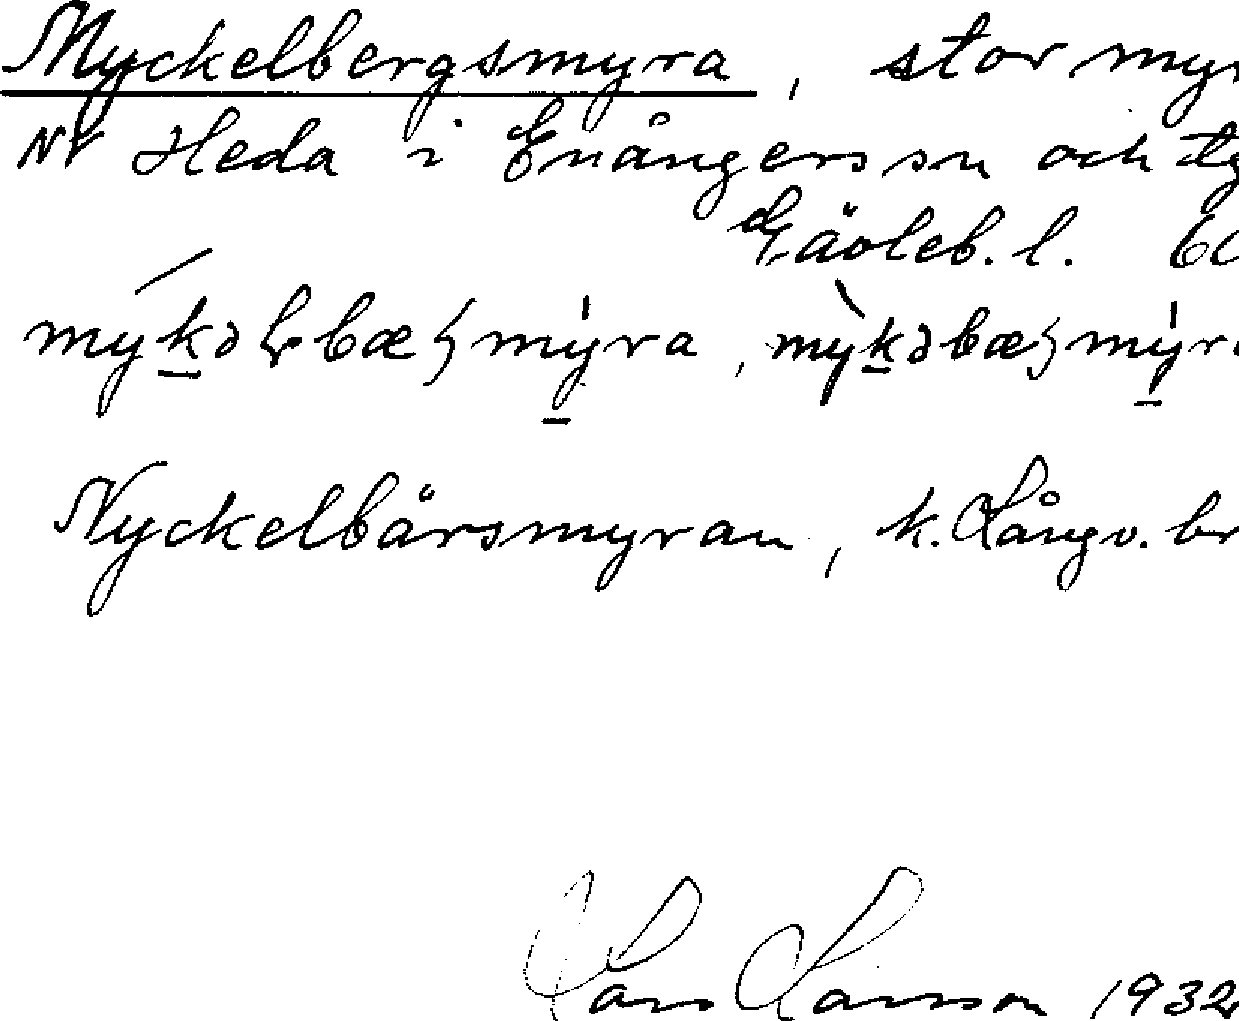 Myckelbergsmyra, stor myr
NV Heda i Enångers sn och tg
Gävleb. l. 60
mýkəɭbæʂmyra, mỳkəbæʂmyra
Nyckelbärsmyran, k. Långv. br
Lars Larsson 1932